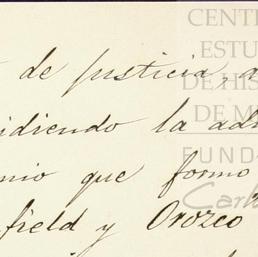 de justicia,
idiendo la ad
nio que formo
field y Orozco
CENT
ESTU
DE HIS
DE M
FUND
Car